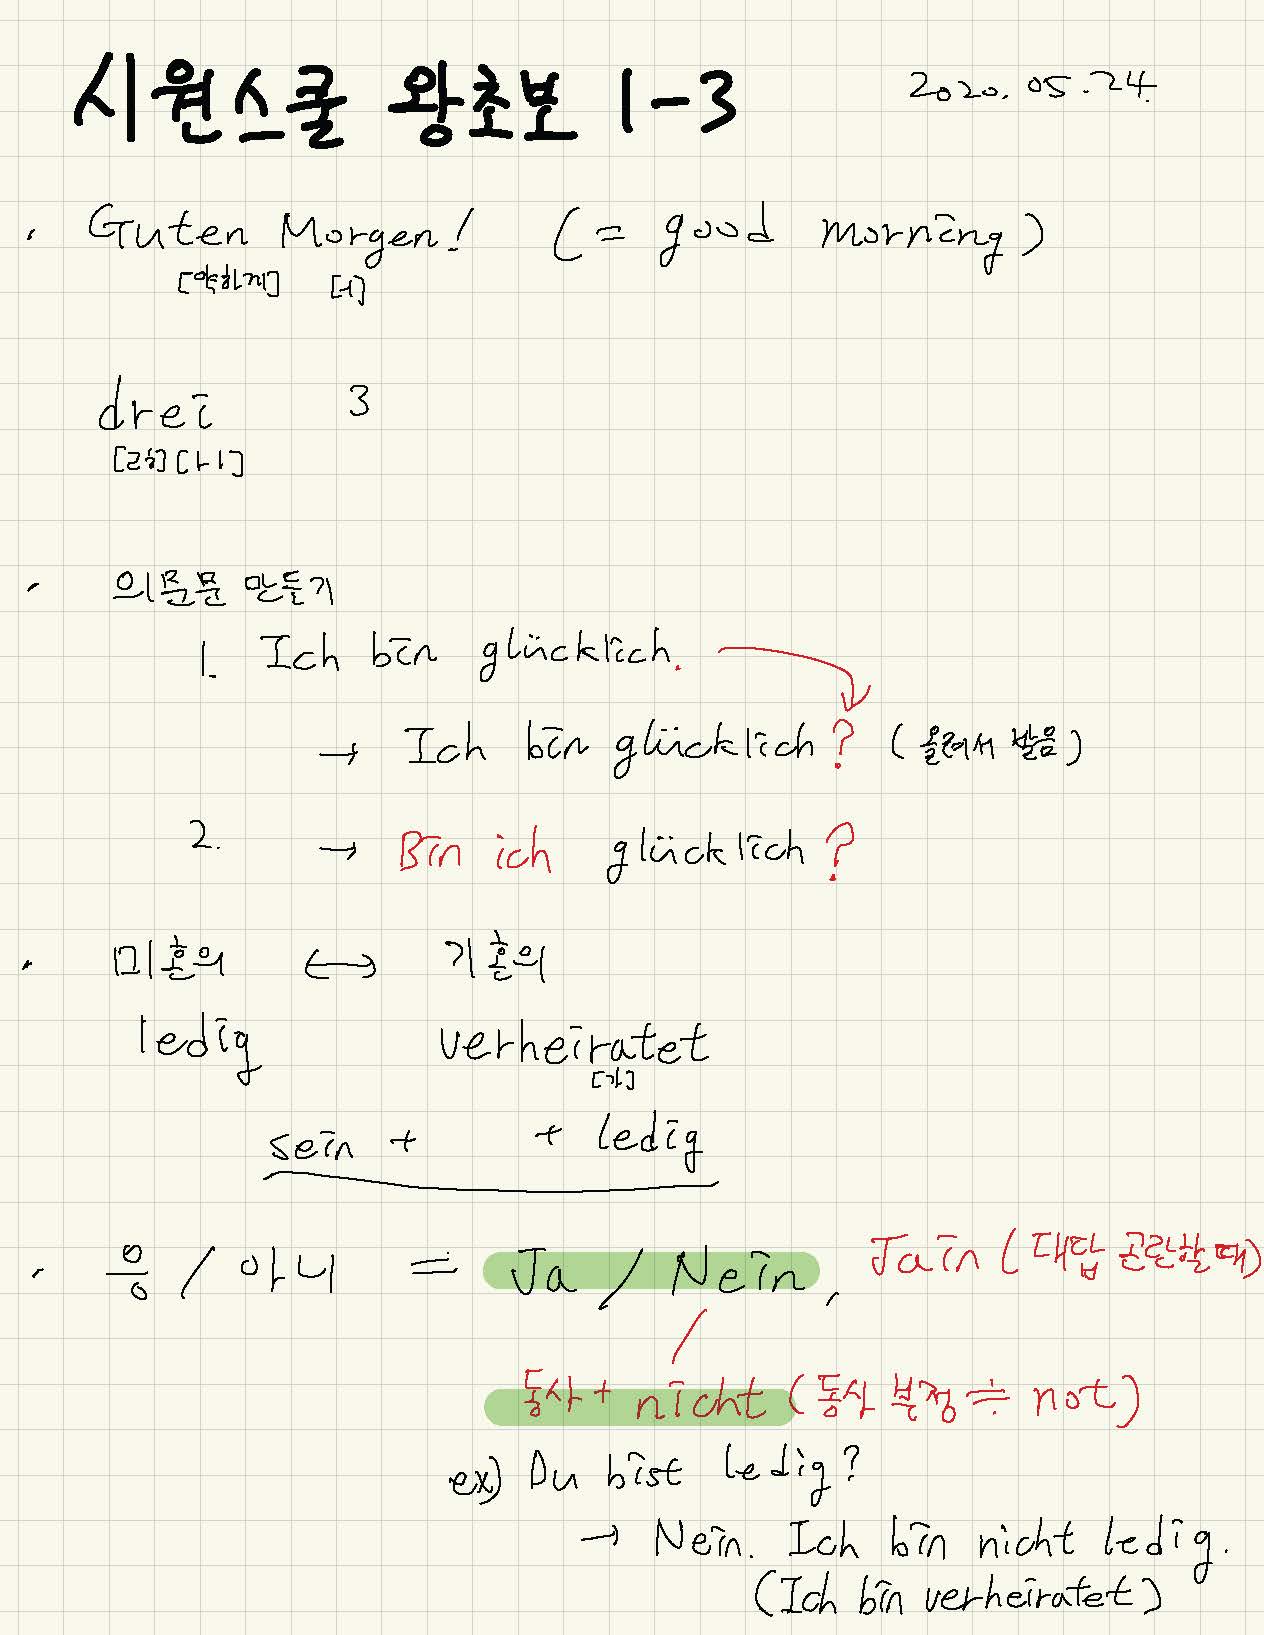 시원스쿨 왕초보 1-3 2020.05.24.
· Guten Morgen! (= good morning)
[약하게] [ㅓ]
drei 3
[ㄹ해] [ㅏㅣ]
· 의문문 만들기
1. Ich bin glücklich.
→ Ich bin glücklich? (올려서 발음)
2. → Bin ich glücklich?
· 미혼의 ↔ 기혼의
ledig verheiratet
[가]
sein + + ledig
· 응 / 아니 = Ja / Nein, Jain (대답 곤란할 때)
동사 + nicht (동사 부정 ≒ not)
ex) Du bist ledig?
→ Nein. Ich bin nicht ledig.
(Ich bin verheiratet)